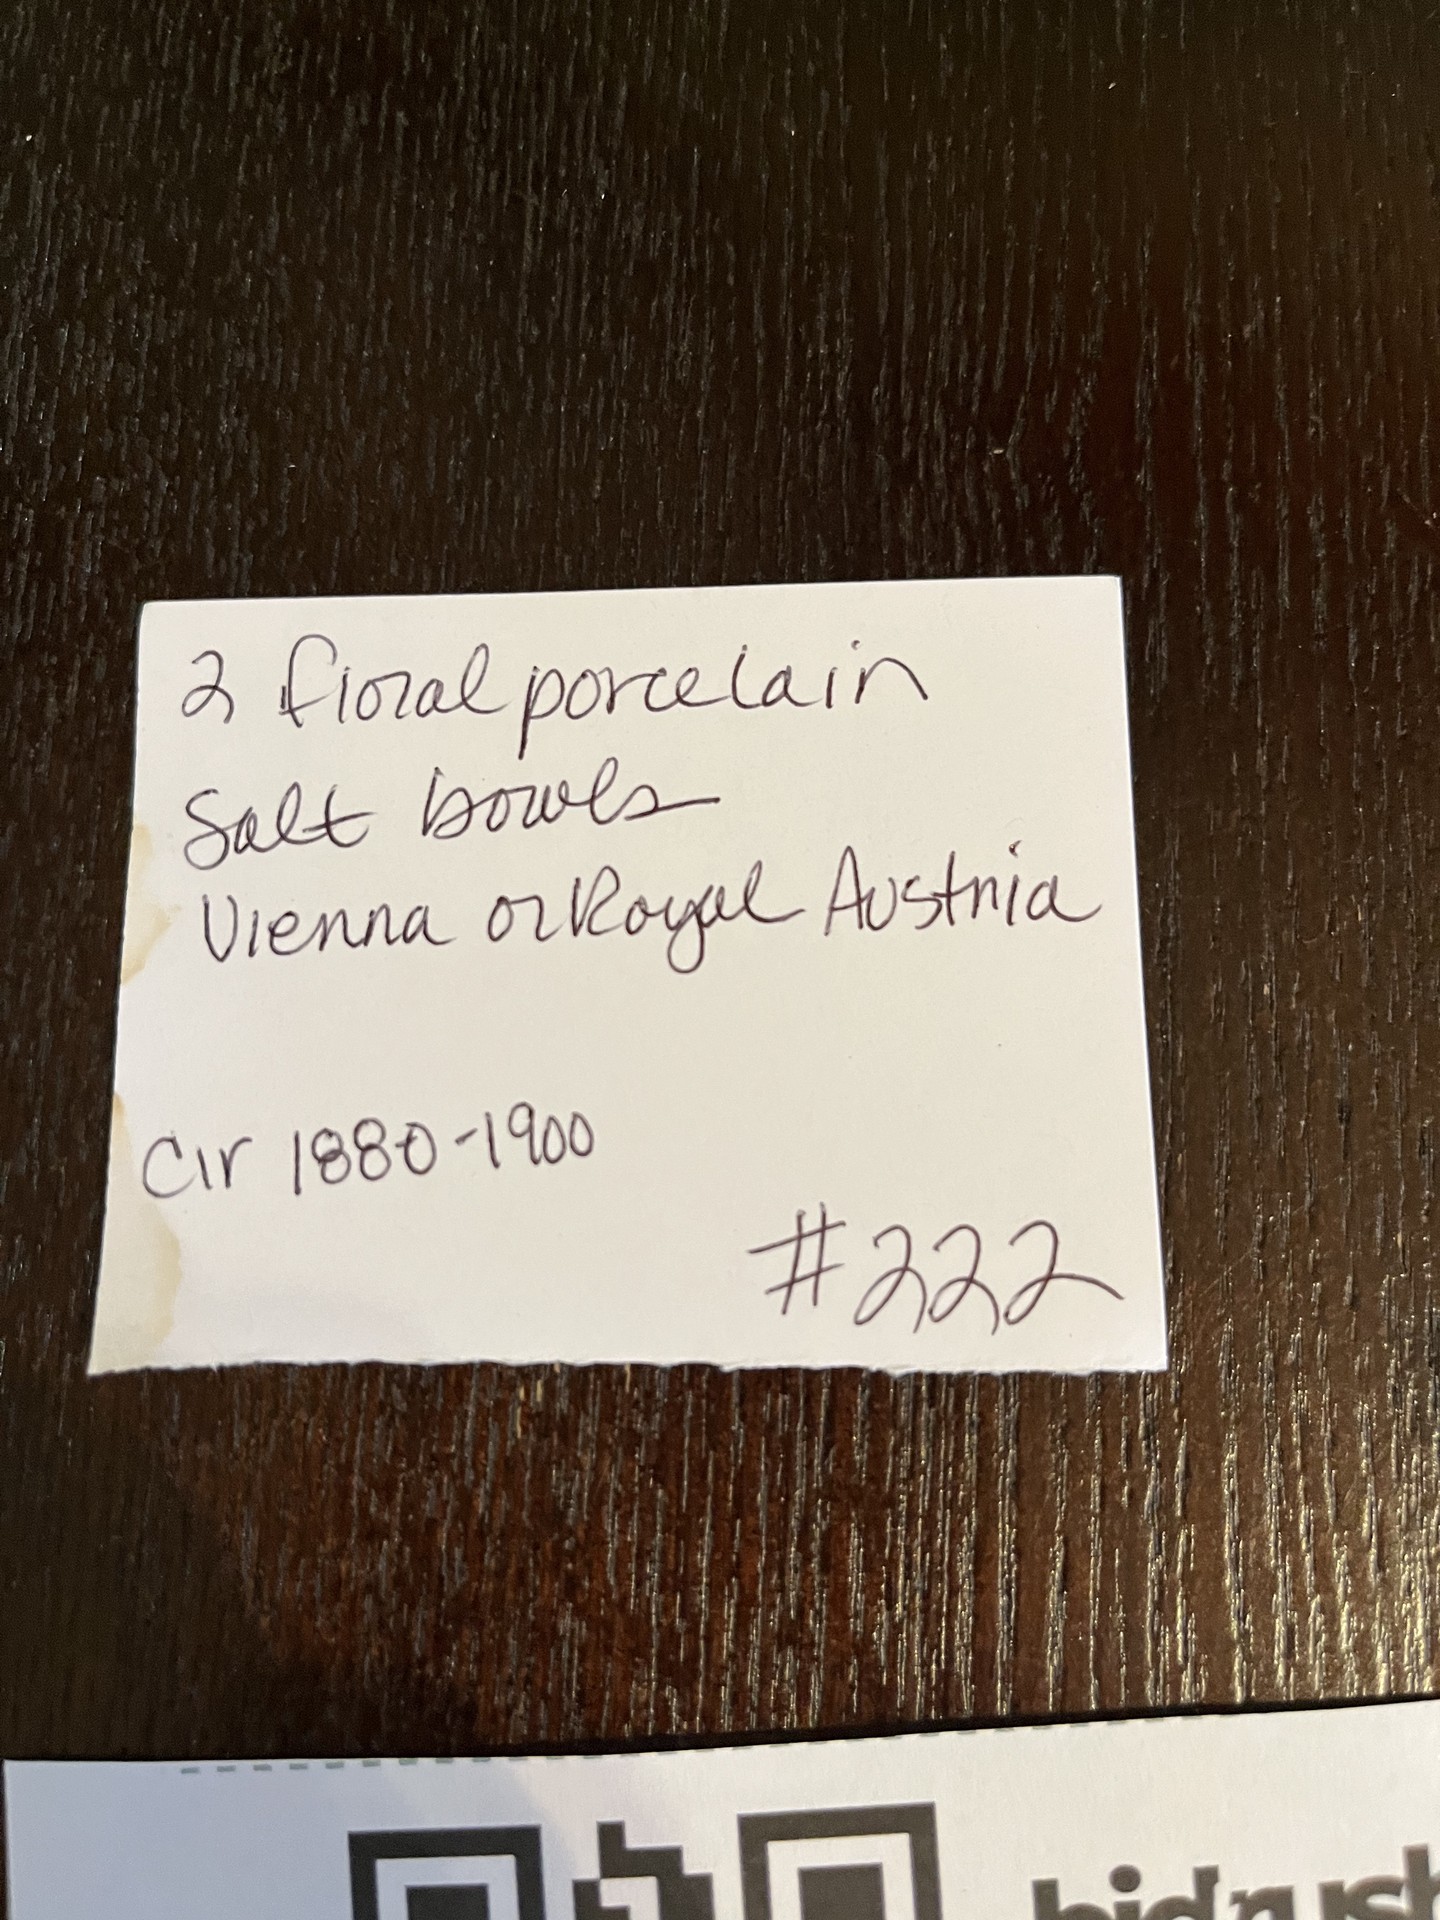 2 floral porcelain
Salt bowls
Vienna or Royal Austria
Cir 1880-1900
#222